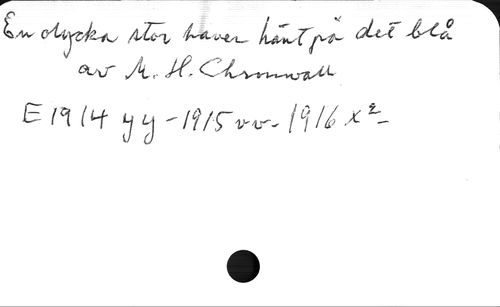 En olycka stor haver hänt på det blå
av M. H. Chronwall
E 1914 yy - 1915 vv - 1916 x² -